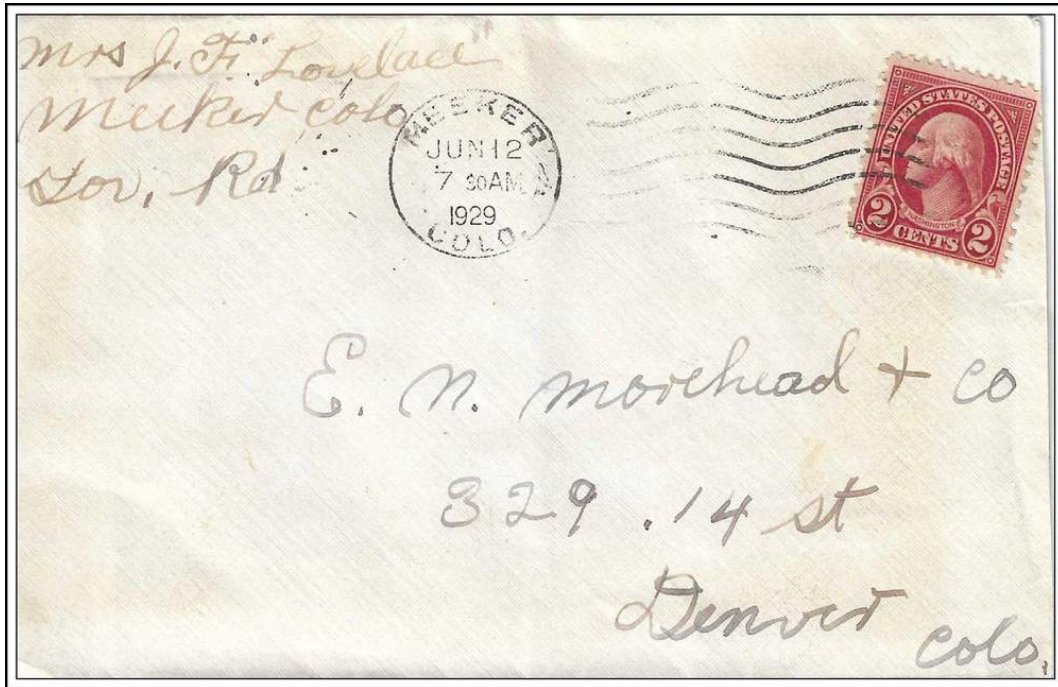 Mrs J. F. Lovelace
Meeker Colo
Rd
MEEKER
JUN 12
7 30AM
1929
COLO.
UNITED STATES POSTAGE
WASHINGTON
2 CENTS 2
E. N. Morehead + Co
329 . 14 st
Denver
Colo.